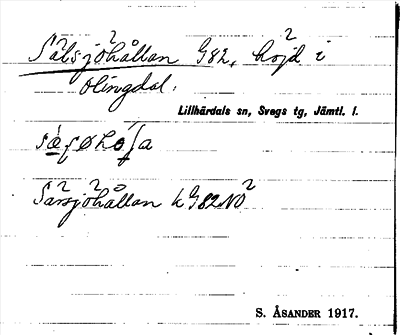 Sälsjöhållan G82, höjd i
Olingdal.
Lillhärdals sn, Svegs tg, Jämtl. l.
Särsjöhållan h G82NO
S. ÅSANDER 1917.